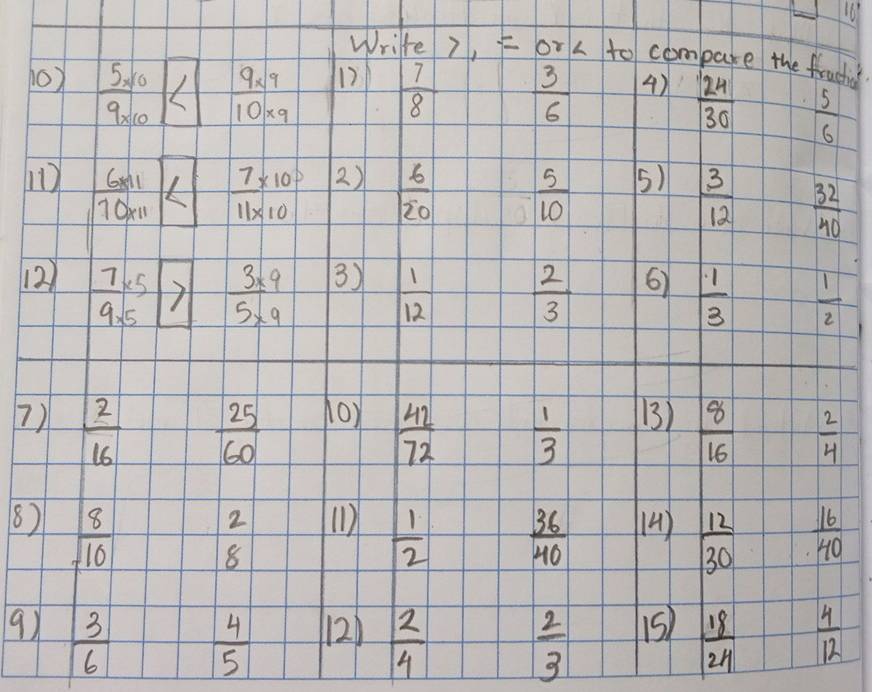 10
Write >, = or < to compare the fraction
10) 5×10/9×10 < 9×9/10×9 1) 7/8 3/6 4) 24/30 5/6
11) 6×11/10×11 < 7×10/11×10 2) 6/20 5/10 5) 3/12 32/40
12) 7×5/9×5 > 3×9/5×9 3) 1/12 2/3 6) 1/3 1/2
7) 2/16 25/60 10) 42/72 1/3 13) 8/16 2/4
8) 8/10 2/8 11) 1/2 36/40 14) 12/30 16/40
9) 3/6 4/5 12) 2/4 2/3 15) 18/24 4/12